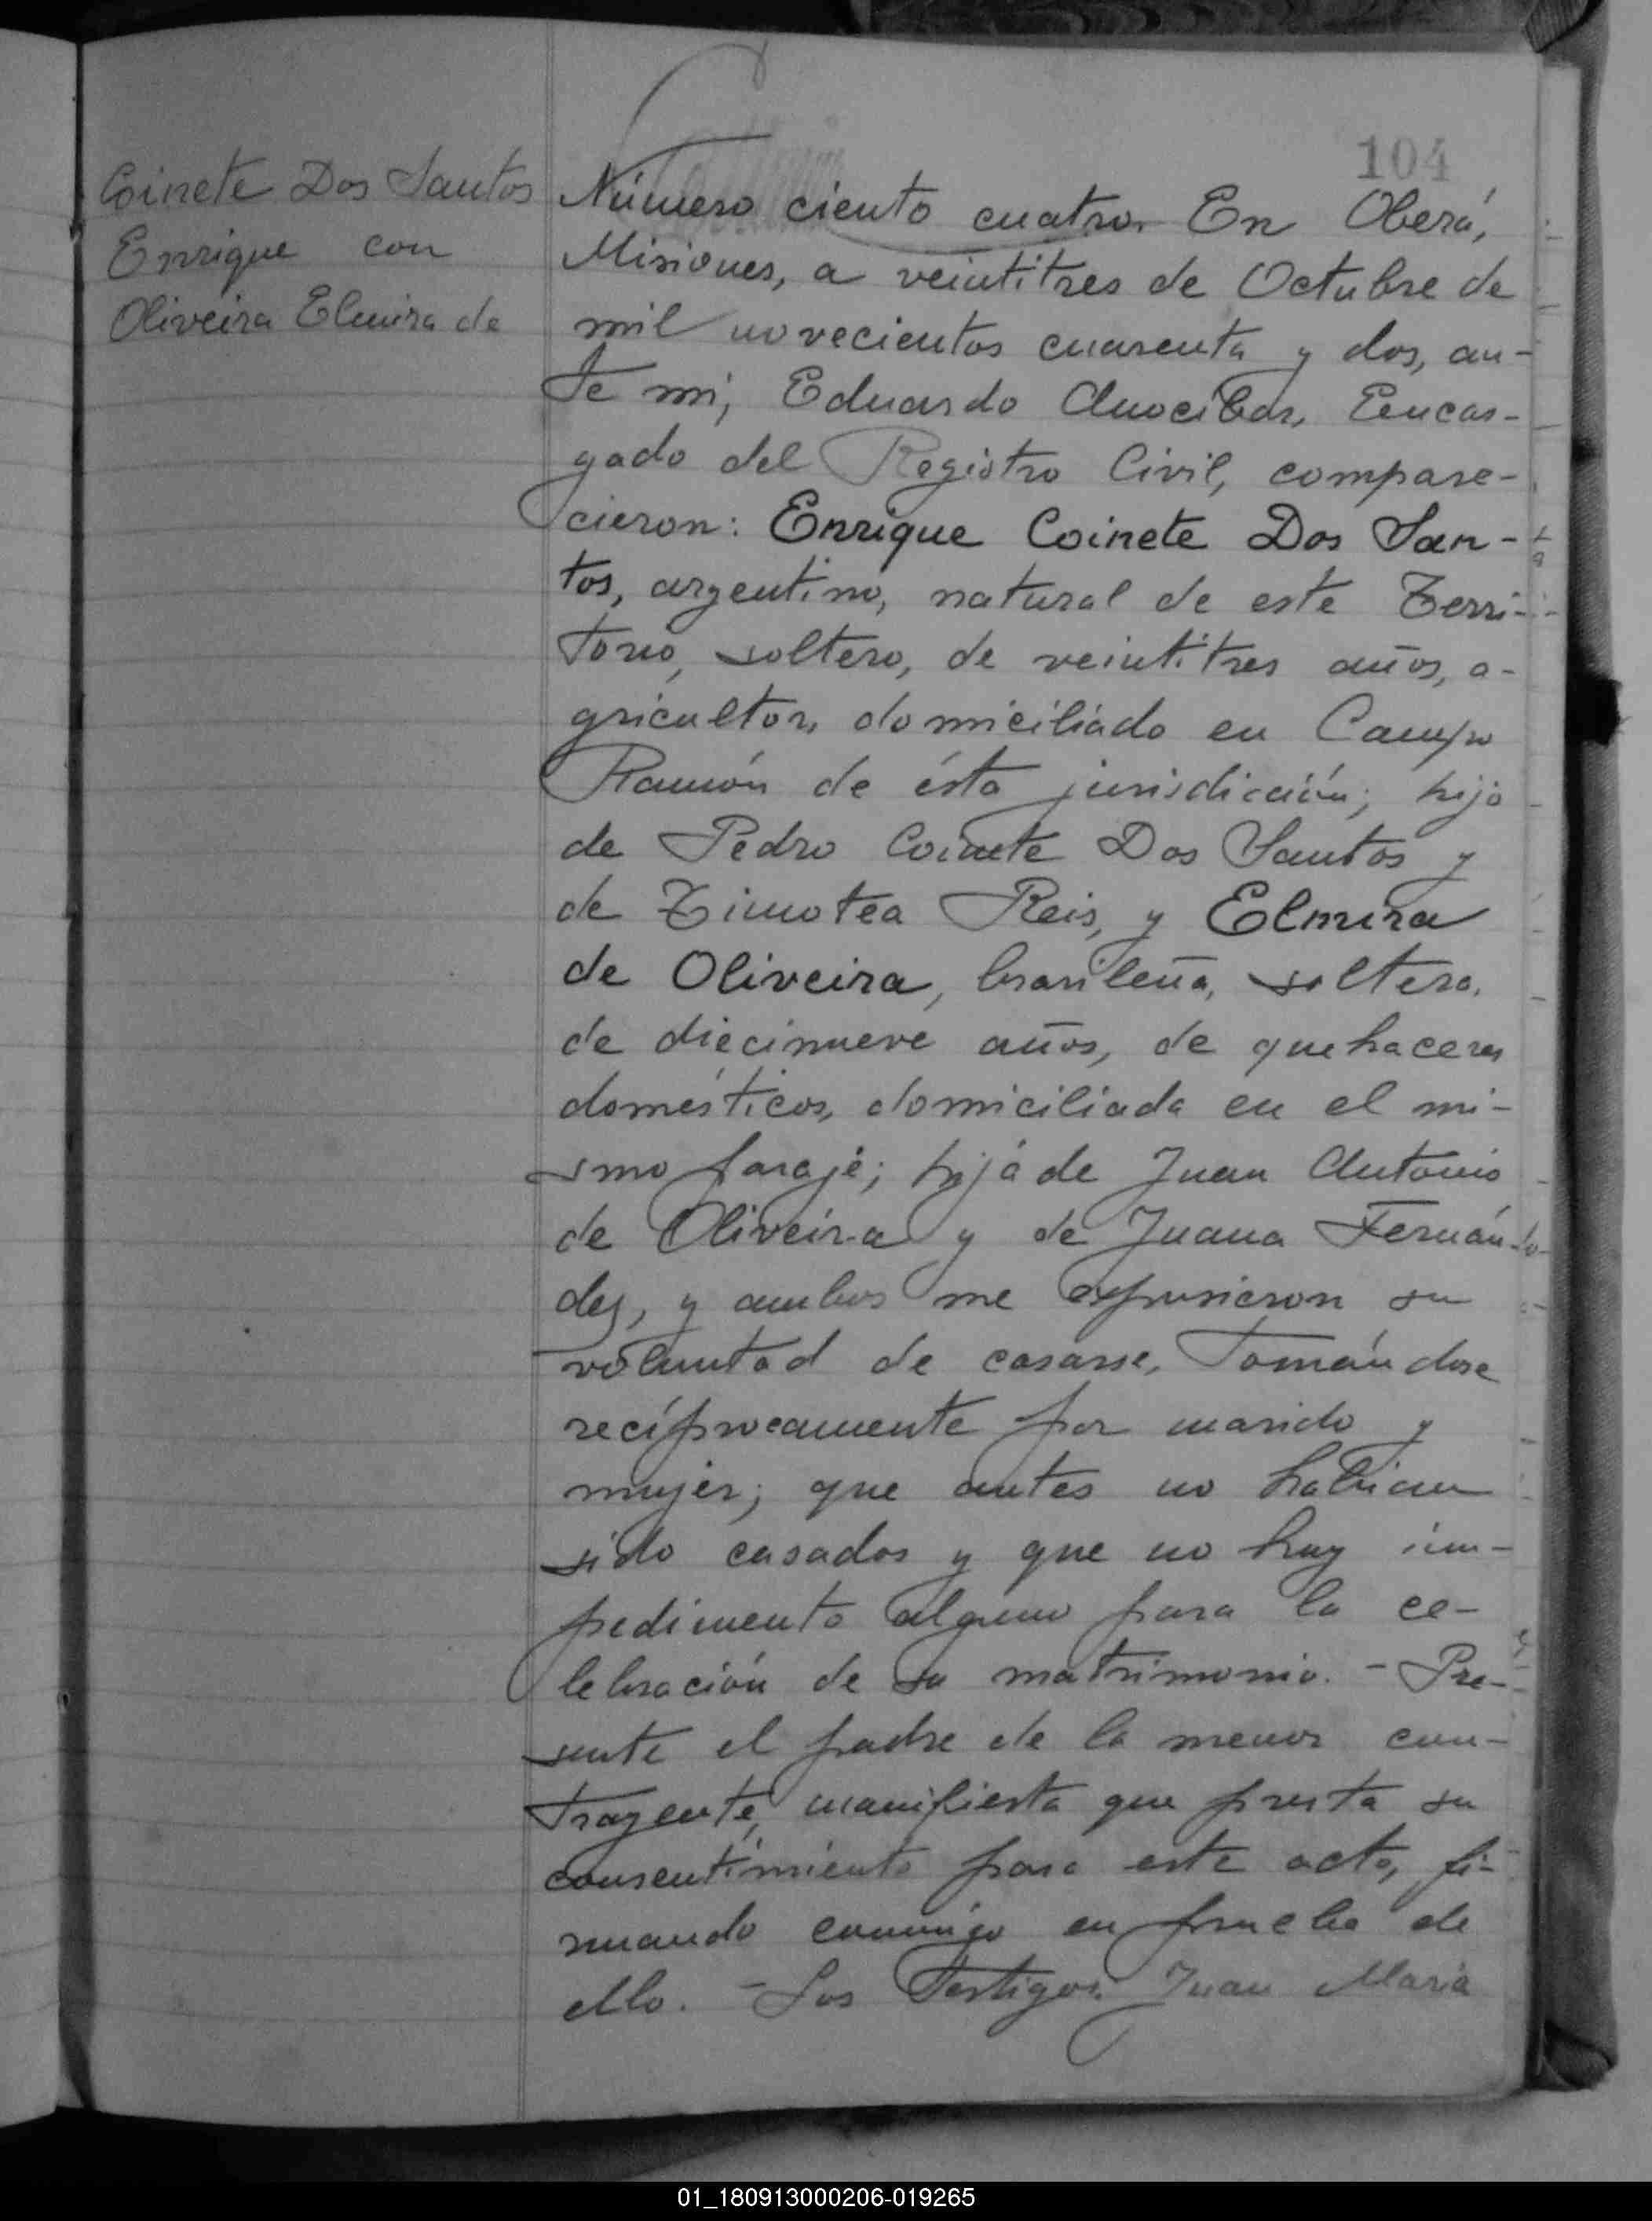 104
Coinete Dos Santos
Enrique con
Oliveira Elmira de
Número ciento cuatro. En Oberá,
Misiones, a veintitres de Octubre de
mil novecientos cuarenta y dos, an-
te mí, Eduardo Anocibar, Encar-
gado del Registro Civil, compare-
cieron: Enrique Coinete Dos San-
tos, argentino, natural de este Terri-
torio, soltero, de veintitres años, a-
gricultor, domiciliado en Campo
Ramón de ésta jurisdicción; hijo
de Pedro Coinete Dos Santos y
de Timotea Reis, y Elmira
de Oliveira, brasileña, soltera,
de diecinueve años, de quehaceres
domésticos, domiciliada en el mi-
smo paraje; hija de Juan Antonio
de Oliveira y de Juana Fernán-
dez, y ambos me expusieron su
voluntad de casarse, tomándose
recíprocamente por marido y
mujer; que antes no habian
sido casados y que no hay im-
pedimento alguno para la ce-
lebración de su matrimonio. - Pre-
sente el padre de la menor con-
trayente, manifiesta que presta su
consentimiento para este acto, fi-
rmando conmigo en prueba de
ello. - Los Testigos: Juan Maria
01_180913000206-019265